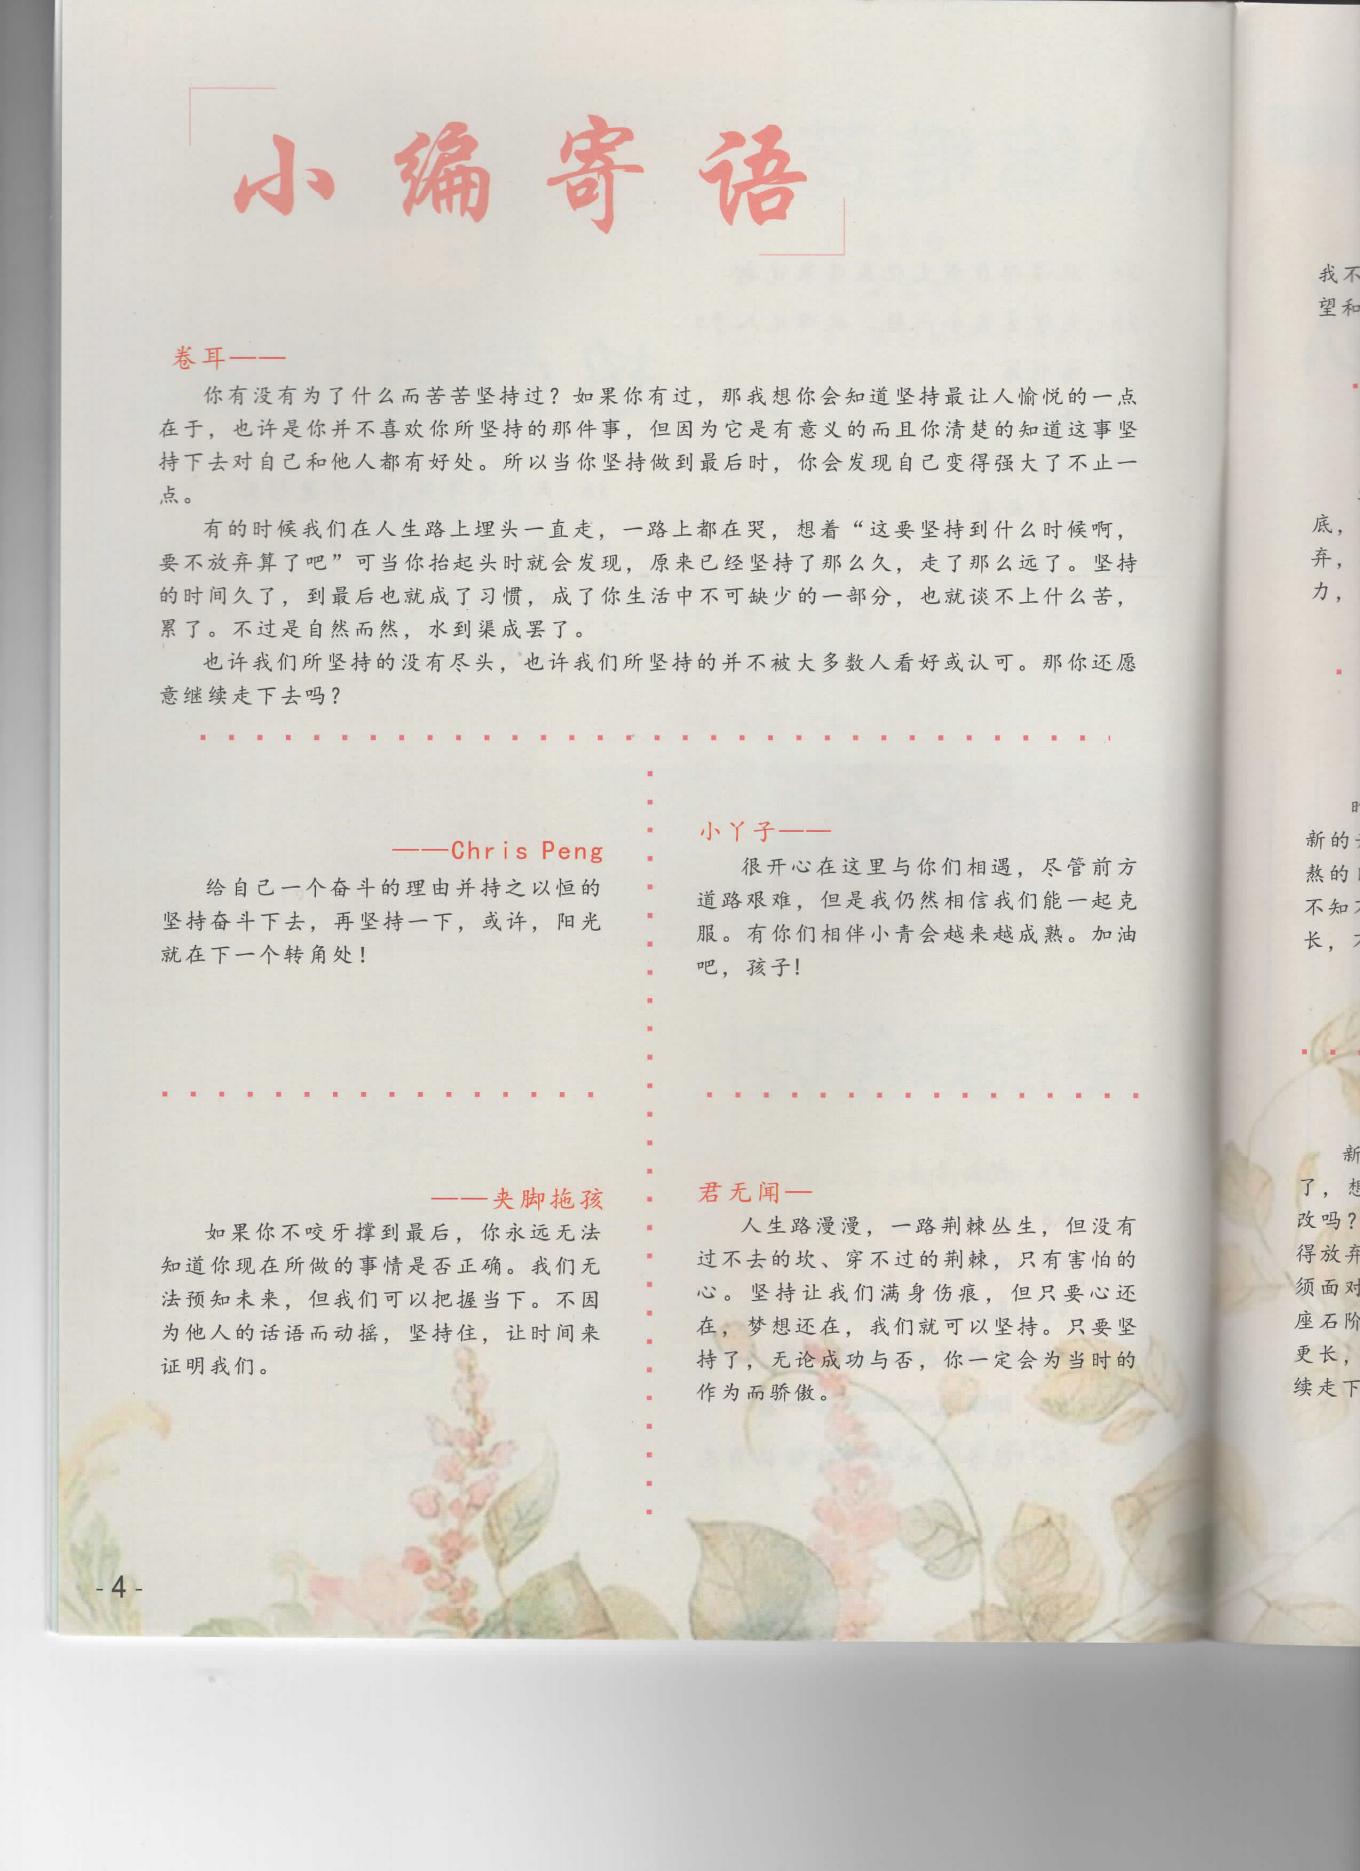 小编寄语
卷耳——
你有没有为了什么而苦苦坚持过？如果你有过，那我想你会知道坚持最让人愉悦的一点
在于，也许是你并不喜欢你所坚持的那件事，但因为它是有意义的而且你清楚的知道这事坚
持下去对自己和他人都有好处。所以当你坚持做到最后时，你会发现自己变得强大了不止一
点。
有的时候我们在人生路上埋头一直走，一路上都在哭，想着“这要坚持到什么时候啊，
要不放弃算了吧”可当你抬起头时就会发现，原来已经坚持了那么久，走了那么远了。坚持
的时间久了，到最后也就成了习惯，成了你生活中不可缺少的一部分，也就谈不上什么苦，
累了。不过是自然而然，水到渠成罢了。
也许我们所坚持的没有尽头，也许我们所坚持的并不被大多数人看好或认可。那你还愿
意继续走下去吗？
——Chris Peng
给自己一个奋斗的理由并持之以恒的
坚持奋斗下去，再坚持一下，或许，阳光
就在下一个转角处！
小丫子——
很开心在这里与你们相遇，尽管前方
道路艰难，但是我仍然相信我们能一起克
服。有你们相伴小青会越来越成熟。加油
吧，孩子！
——夹脚拖孩
如果你不咬牙撑到最后，你永远无法
知道你现在所做的事情是否正确。我们无
法预知未来，但我们可以把握当下。不因
为他人的话语而动摇，坚持住，让时间来
证明我们。
君无闻—
人生路漫漫，一路荆棘丛生，但没有
过不去的坎、穿不过的荆棘，只有害怕的
心。坚持让我们满身伤痕，但只要心还
在，梦想还在，我们就可以坚持。只要坚
持了，无论成功与否，你一定会为当时的
作为而骄傲。
-4-
我不
望和
底，
弃，
力，
新的
熬的
不知
长，
新
了，想
改吗？
得放弃
须面对
座石阶
更长，
续走下